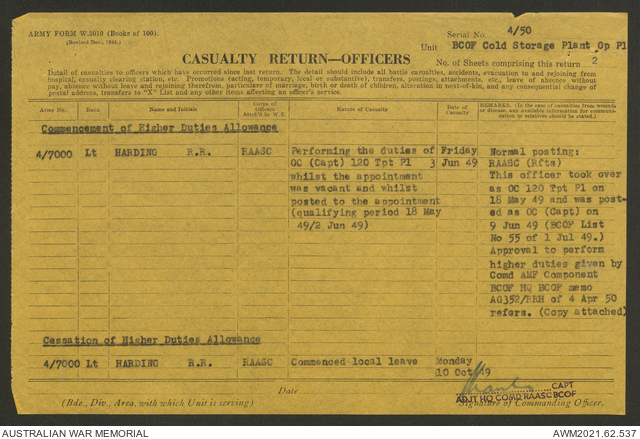 ARMY FORM W.3010 (Books of 100).
(Revised Dec., 1941.)
Serial No. 4/50
Unit BCOF Cold Storage Plant Op Pl
CASUALTY RETURN—OFFICERS
No. of Sheets comprising this return 2
Detail of casualties to officers which have occurred since last return. The detail should include all battle casualties, accidents, evacuation to and rejoining from
hospital, casualty clearing station, etc. Promotions (acting, temporary, local or substantive), transfers, postings, attachments, etc., leave of absence without
pay, absence without leave and rejoining therefrom, particulars of marriage, birth or death of children, alteration in next-of-kin, and any consequential change of
postal address, transfers to "X" List and any other items affecting an officer's service.
Army No. Rank Name and Initials Corps of Officers Attch'd to W.E. Nature of Casualty Date of Casualty REMARKS. (In the case of casualties from wounds or disease, any available information for communication to relatives should be stated.)
Commencement of Higher Duties Allowance
4/7000 Lt HARDING R.R. RAASC Performing the duties of Friday Normal posting:
OC (Capt) 120 Tpt Pl 3 Jun 49 RAASC (Rfts)
whilst the appointment This officer took over
was vacant and whilst as OC 120 Tpt Pl on
posted to the appointment 18 May 49 and was post-
(qualifying period 18 May ed as OC (Capt) on
49/2 Jun 49) 9 Jun 49 (BCOF List
No 55 of 1 Jul 49.)
Approval to perform
higher duties given by
Comd AMF Component
BCOF HQ BCOF memo
AG352/RBH of 4 Apr 50
refers. (Copy attached)
Cessation of Higher Duties Allowance
4/7000 Lt HARDING R.R. RAASC Commenced local leave Monday
10 Oct 49
CAPT
ADJT HQ COMD RAASC BCOF
Date
(Bde., Div., Area, with which Unit is serving)
Signature of Commanding Officer.
AUSTRALIAN WAR MEMORIAL
AWM2021.62.537